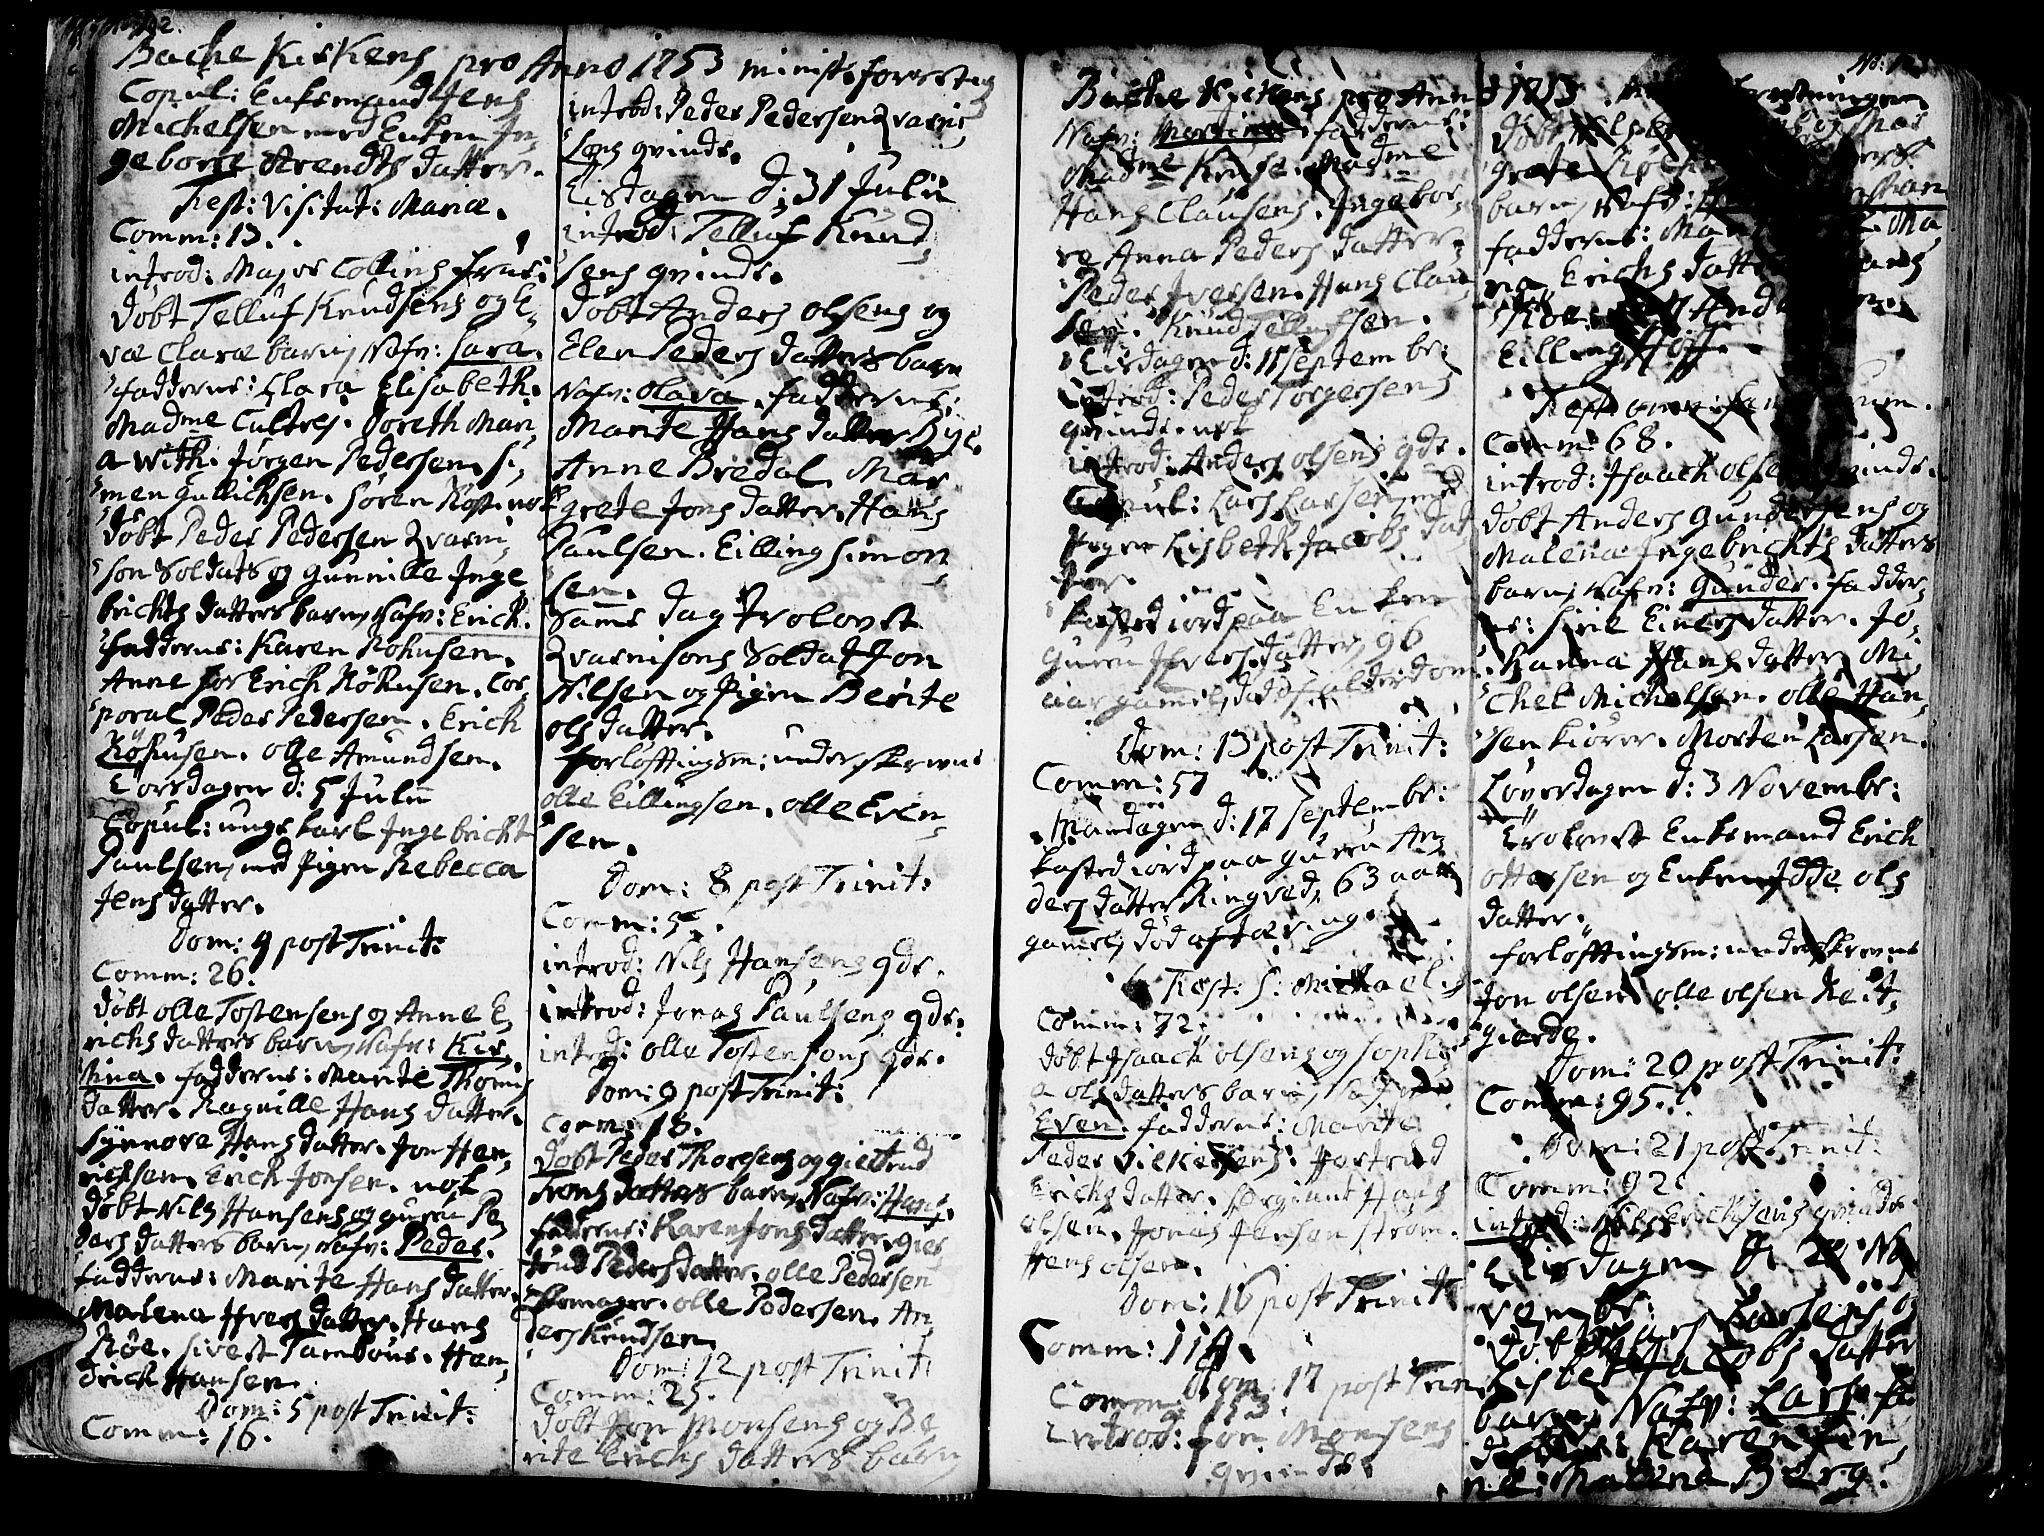 Bache Kirkens pro Anno 1753 minist: forrettning
Copul: Enkemand Jens
Michelsen med Enken In-
geborre Arendts datter.
Fest: Visitat: Mariæ.
Comm: 13.
introd: Major Collins frue:
døbt Telluf Knudsens og E-
væ Claræ barn, Nafn: Sara.
fadderne: Clara Elisabeth.
Madme Coltres. Doreth Mari-
a With. Jørgen Pedersen. Si-
men Gullichsen. Søren Rost. not
døbt Peder Pedersen Qvarni-
son Soldats og Gunnille Inge
brichts datters barn, Nafn: Erich.
fadderne: Karen Röhnsen.
Anne for Erich Röhnsen. Cor-
poral Peder Pedersen. Erich
Röhnsen. olle Amundsen.
Torsdagen d: 5 Julii
Copul: unge karl Ingebricht
Paulsen, med Pigen Rebecca
Jens datter.
Dom: 4 post Trinit:
Comm: 26.
døbt olle Tostensens og Anne E-
richs datters barn, Nafn: Kir-
stina. fadderne: Marite Thomis
datter. Ragnille Hans datter.
Synnove Hans datter. Jon Hen-
richsen. Erich Jonsen. not
døbt Nils Hansens og Guru Pe-
ders datters barn, Nafn: Peder.
fadderne: Marite Hans datter.
Malena Ifvers datter. Hans
Røe. Sivert Tambour. Hen-
drich Hansen.
Dom: 5 post Trinit:
Comm: 16.
introd: Peder Pedersen Qvarni-
sons qvinde.
Tisdagen d: 31 Julii
introd: Telluf Knud-
sens qvinde.
døbt Anders olsens og
Elen Peders datters barn
Nafn: Olava. fadderne:
Marite Hans datter Bye.
Anne Bredal. Mar
grete Jons datter. Hans
Paulsen. Eilling Simon
sen.
Samme dag trolovet
Qvarnisons Soldat Jon
Nilsen og Pigen Berite
ols datter.
forløftingsm: underskrevne
olle Eillingsen. olle Even-
sen.
Dom: 8 post Trinit:
Comm: 5.
introd: Nils Hansens qde.
introd: Jonas Paulsens qde:
introd: olle Tostensons qde.
Dom: 9 post Trinit:
Comm: 18.
døbt Peder Thoresens og Giertrud
Trons datters barn, Nafn: Hans.
fadderne: Karen Jons datter. Gier-
trud Peders datter. olle Pedersen
skomager. olle Pedersen. An-
ders Knudsen.
Dom: 12 post Trinit:
Comm: 25.
døbt Jon Monsens og Be
rite Erichs datters barn
Bache Kirkens pro Anno 1753
Nafn: fadderne:
Madme Kruse. Madme
Hans Clausens. Ingebor-
re Anna Peders datter.
Peder Iversen. Hans Clau-
sen. Knud Tellufsen.
Tisdagen d: 11 Septembr:
introd: Peder Torgersens
qvinde. not
introd: Anders olsens qde.
Copul: Lars Larsen, med
Pigen Lisbeth Jacobs dat
ter.
kasted iord paa Enken
Guru Ifvers datter, 96
aar gamel, død af alderdom.
Dom: 13 post Trinit:
Comm: 57
Mandagen d: 17 Septembr:
kasted iord paa Guru An-
ders datter Ringved, 63 aar
gamel, død af tæring.
Fest: S: Michaelis
Comm: 72.
døbt Isaack olsens og Sophi-
a ols datters barn, Nafn:
Even. fadderne: Marite
Peder Hertrud
Erichs datter. Sergiant Hans
olsen. Jonas Jensen Strøm.
Hens olsen.
Dom: 16 post Trinit:
Comm: 114.
Dom: 17 post Trin:
Comm: 153
Introd: Jon Monsens
qvinde:
døbt
grete
barn, Nafn:
fadderne: Ma-
ria Erichs datter.
Eilling Hoff.
Fest: omnium
Comm: 68.
introd: Isaack olsens qvinde.
døbt Anders Gundersens og
Malena Ingebrichts datters
barn, Nafn: Gunder. fadder-
ne: Sirie Einers datter. Jo-
hanna Hans datter. Mi-
chel Michelsen. olle Han-
sen kiører. Morten Larsen.
Løverdagen d: 3 Novembr:
Trolovet Enkemand Erich
ottersen og Enken Idde ols
datter.
forløftingsm: underskrevne
Jon olsen. olle olsen Reit-
gierde.
Dom: 20 post Trinit:
Comm: 95.
Dom: 21 post Trinit:
Comm: 92.
introd: Nils Erichsens qvinde:
Tisdagen d: No-
vembr:
døbt Lars Larsens og
Lisbet Jacobs datter
barn, Nafn: Lars. fa-
dderne: Karen Fin-
ne. Malena Berg.